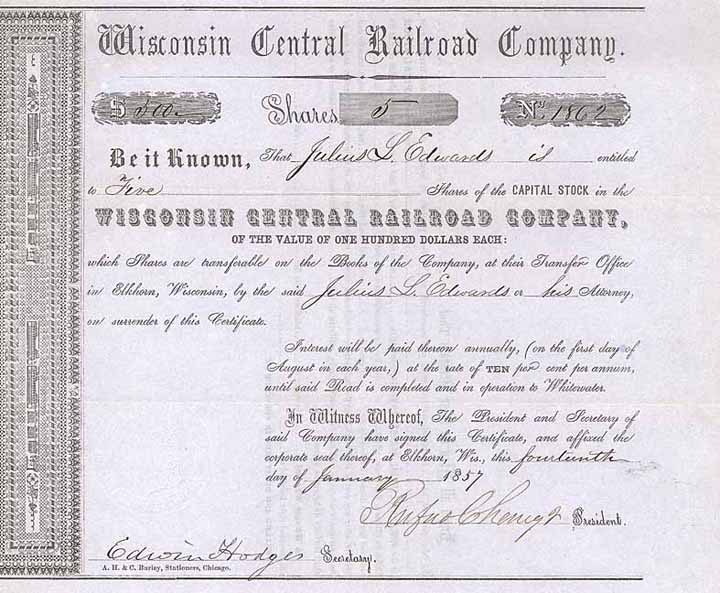 Wisconsin Central Railroad Company.
$ 500. Shares 5 No. 1862
Be it Known, That Julius L. Edwards is entitled
to Five Shares of the CAPITAL STOCK in the
WISCONSIN CENTRAL RAILROAD COMPANY,
OF THE VALUE OF ONE HUNDRED DOLLARS EACH:
which Shares are transferable on the Books of the Company, at their Transfer Office
in Elkhorn, Wisconsin, by the said Julius L. Edwards or his Attorney,
on surrender of this Certificate.
Interest will be paid thereon annually, (on the first day of
August in each year,) at the rate of TEN per cent per annum,
until said Road is completed and in operation to Whitewater.
In Witness Whereof, The President and Secretary of
said Company have signed this Certificate, and affixed the
corporate seal thereof, at Elkhorn, Wis., this fourteenth
day of January 1857
Rufus Cheney Jr President.
Edwin Hodges Secretary.
A. H. & C. Burley, Stationers, Chicago.